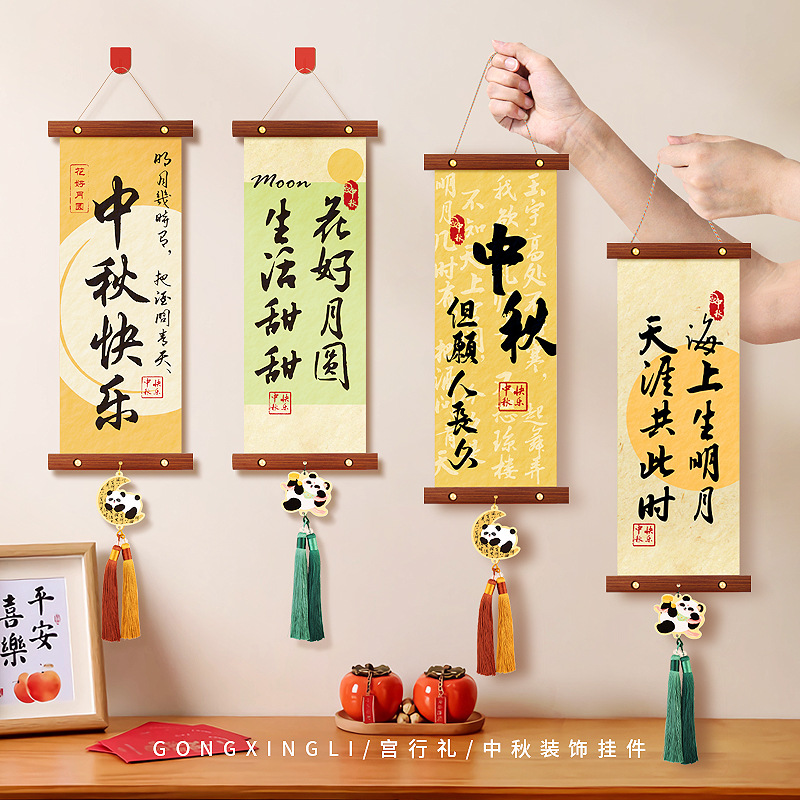 花好月圆
明月幾時有,
把酒問青天、
中秋快乐
中秋
快乐
Moon
中秋
花好月圆
生活甜甜
中秋
快乐
中秋
中秋
但願人長久
中秋
快乐
明月几时有
不知天上
我欲
玉宇
高处
起舞弄
中秋
海上生明月
天涯共此时
中秋
快乐
平安
喜樂
GONGXINGLI/宫行礼/中秋装饰挂件